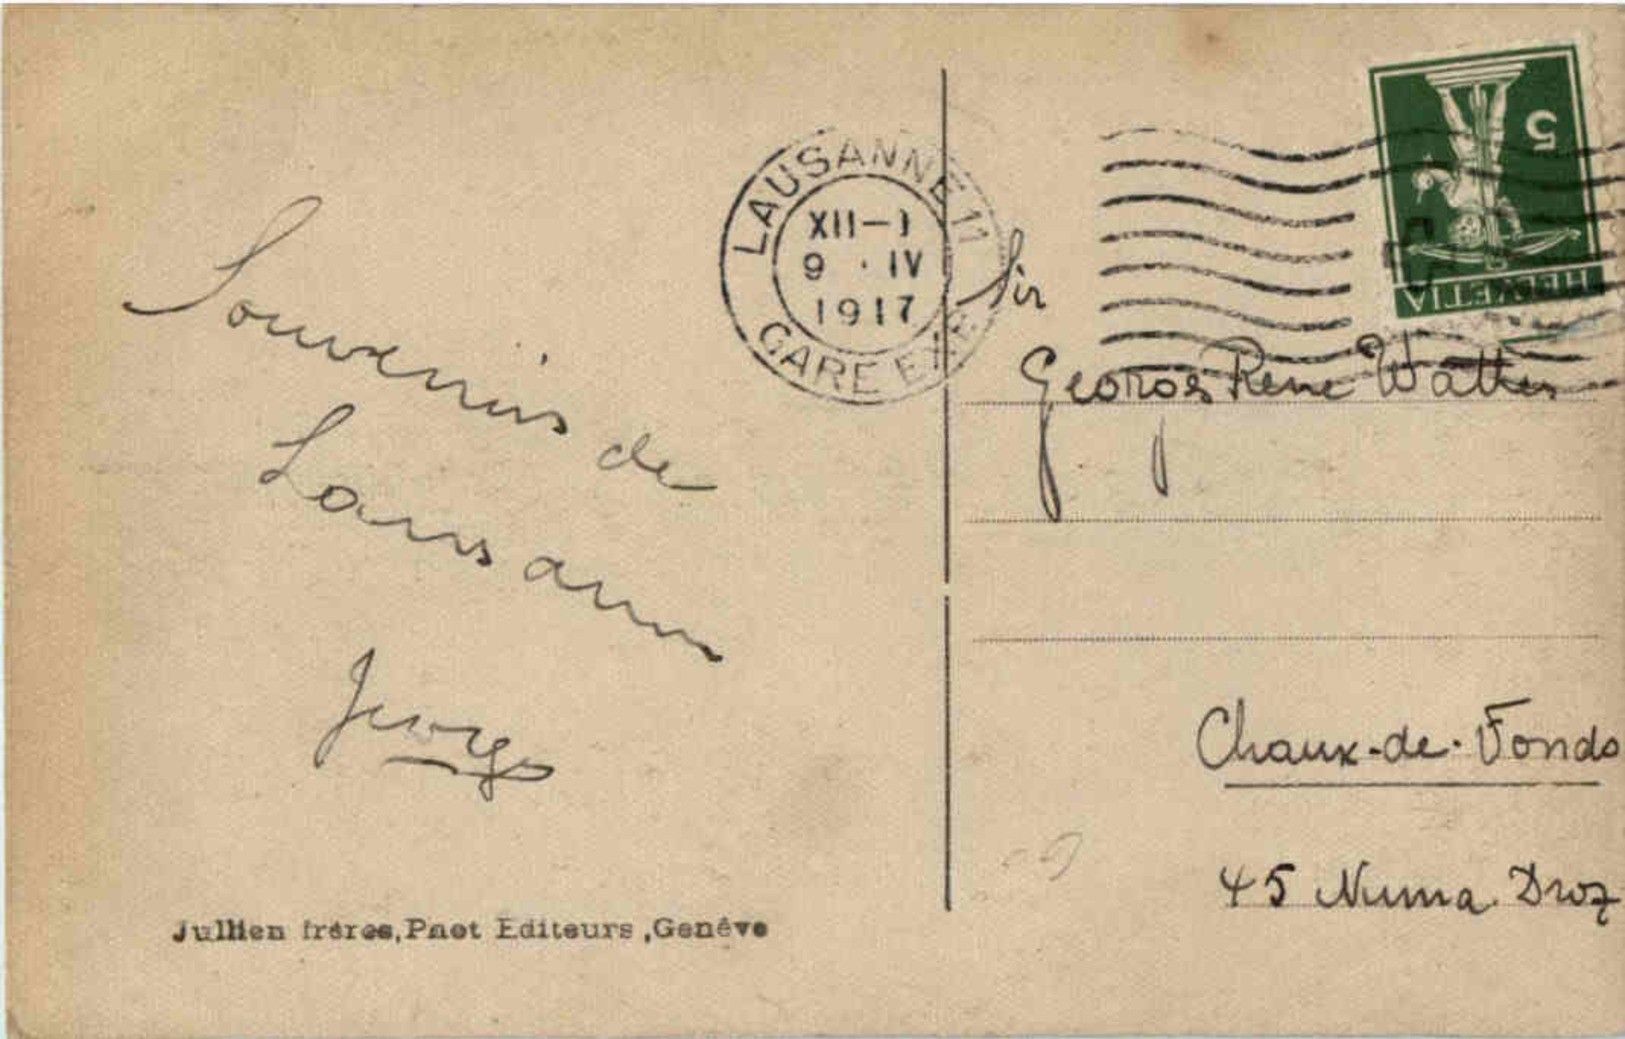 Souvenirs de
Lausanne
Georges
Jullien frères, Phot Editeurs, Genève
LAUSANNE 11
XII–1
9 · IV
1917
GARE EXP.
HELVETIA
5
Sir
Georges René
Chaux-de-Fonds
45 Numa Droz